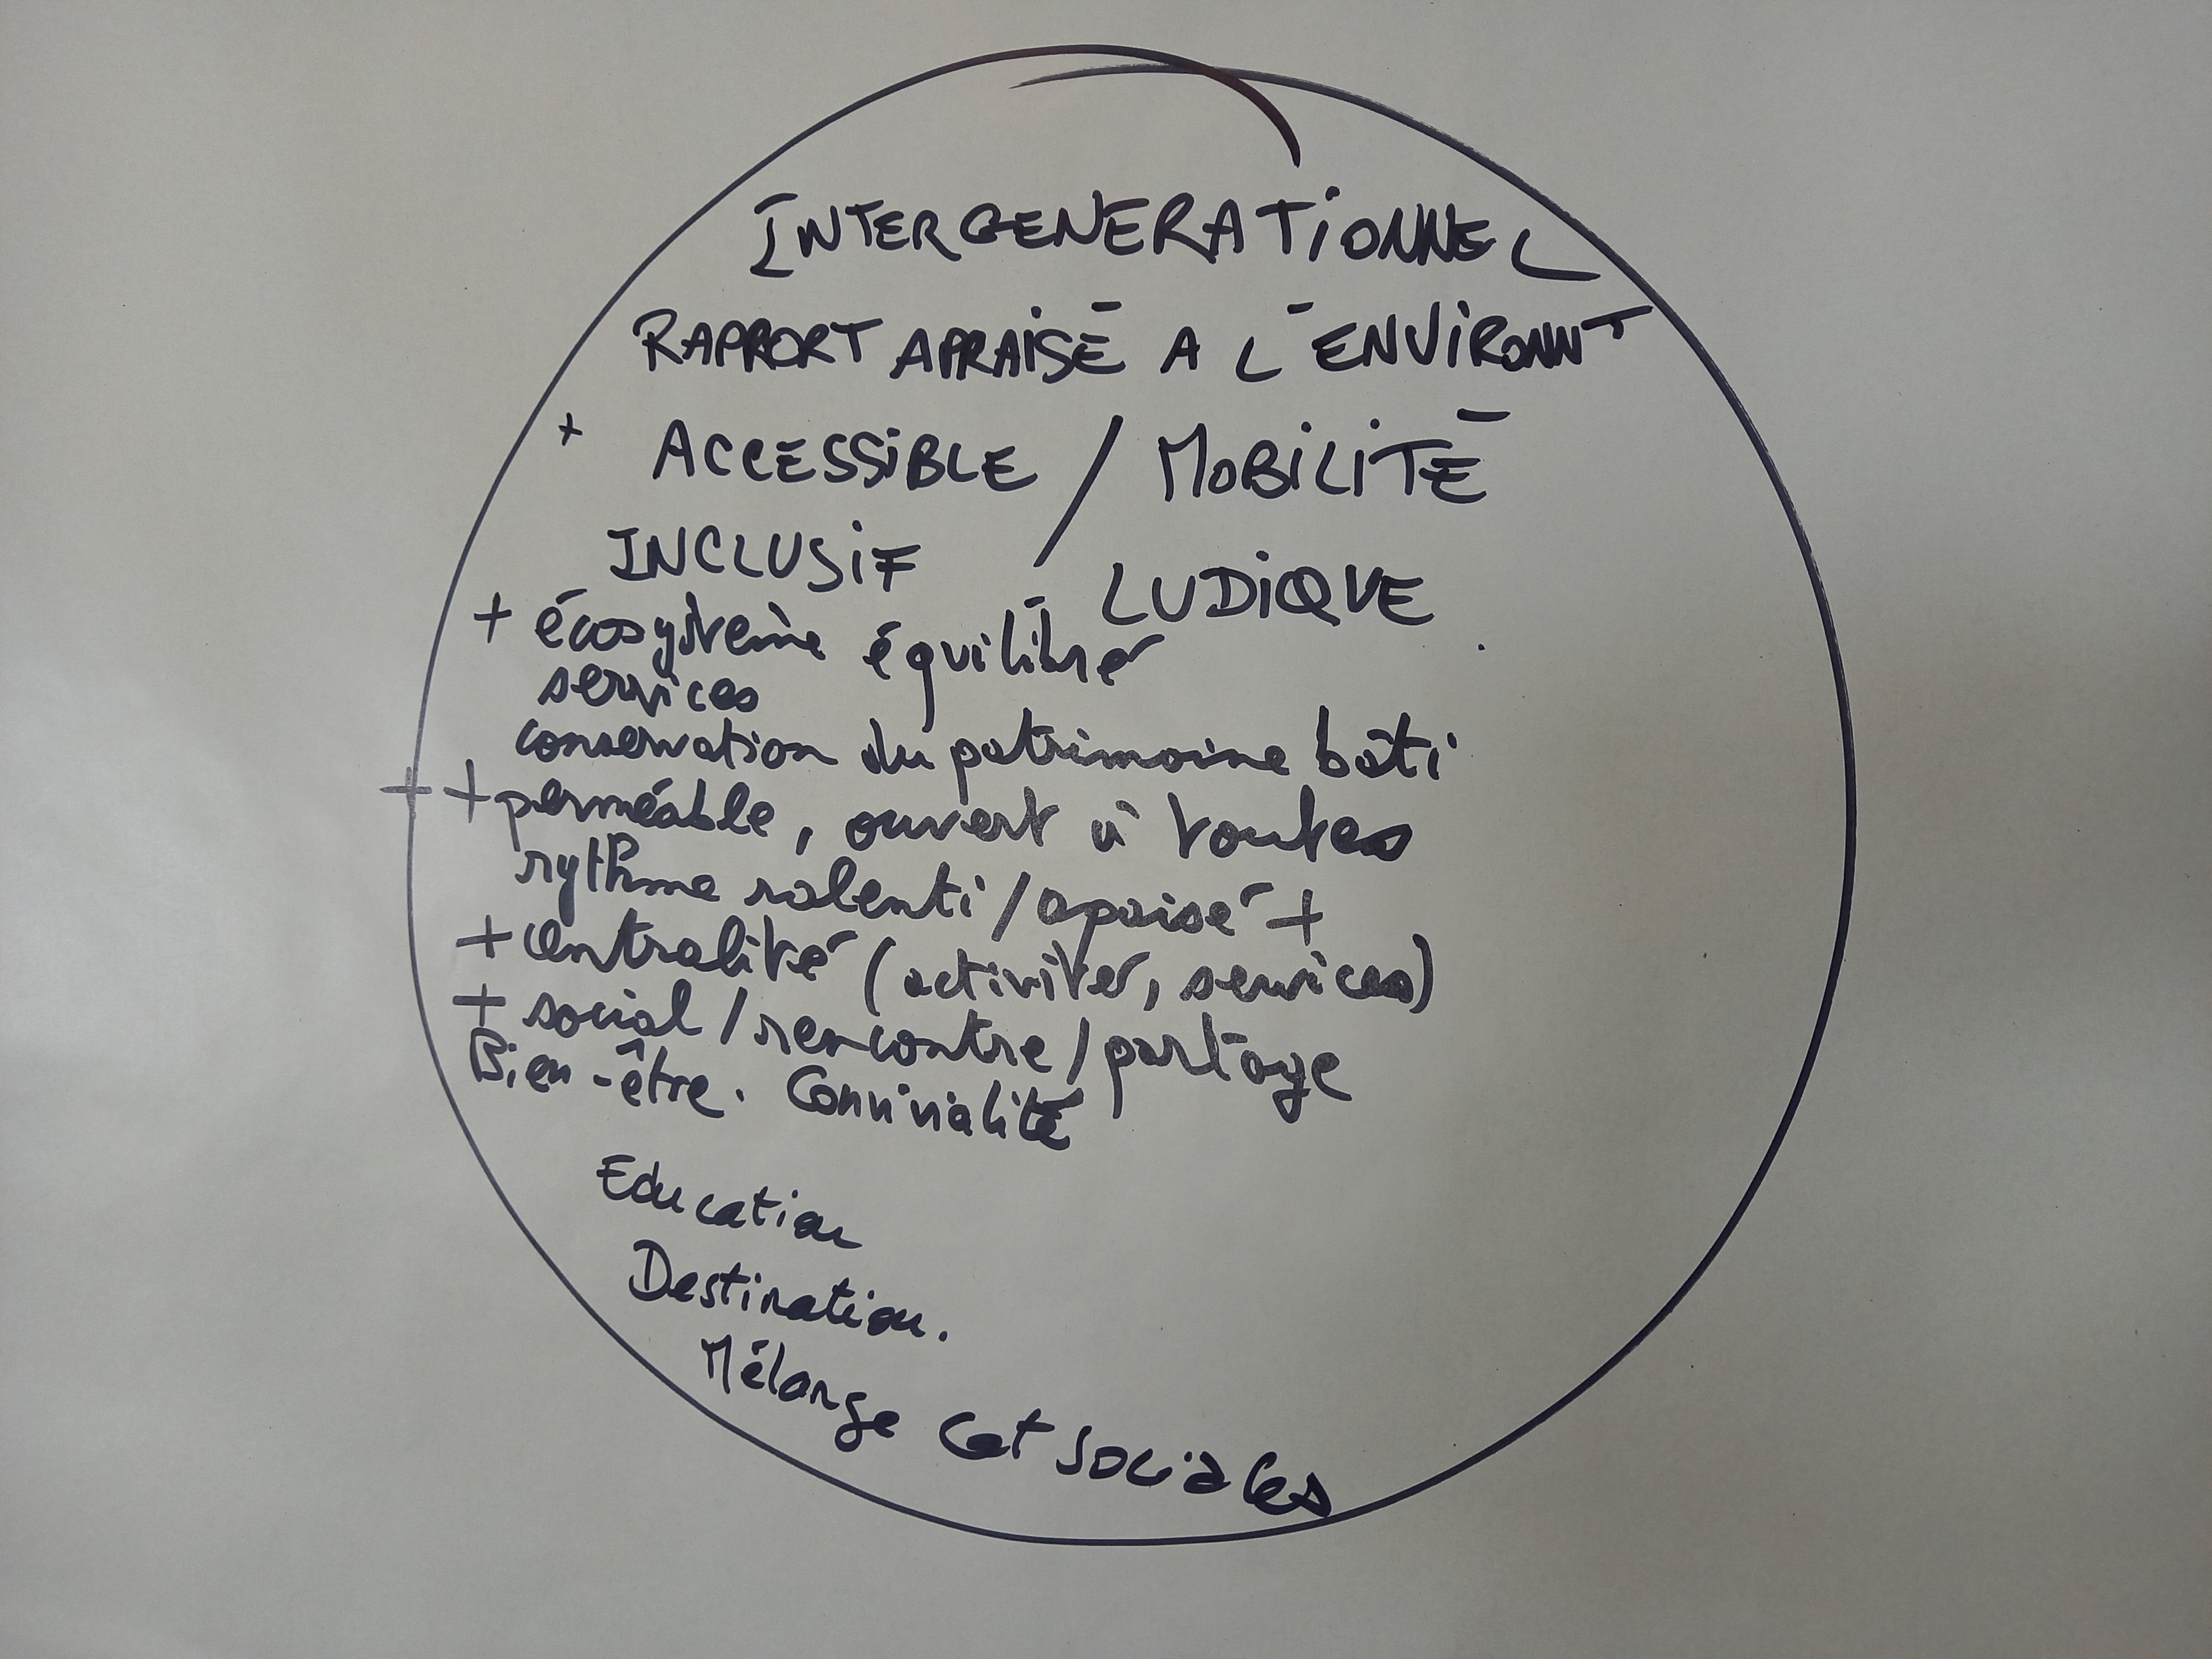 INTERGENERATIONNEL
RAPPORT APRAISÉ A L'ENVIRONNT
+ ACCESSIBLE / MOBILITÉ
INCLUSIF / LUDIQUE
+ écosystème équilibré
services
conservation du patrimoine bâti
+ + perméable, ouvert à toutes
rythme ralenti / apaisé +
+ centralité (activités, services)
+ social / rencontre / partage
Bien-être. Convivialité
Education
Destination.
Mélange cat sociales